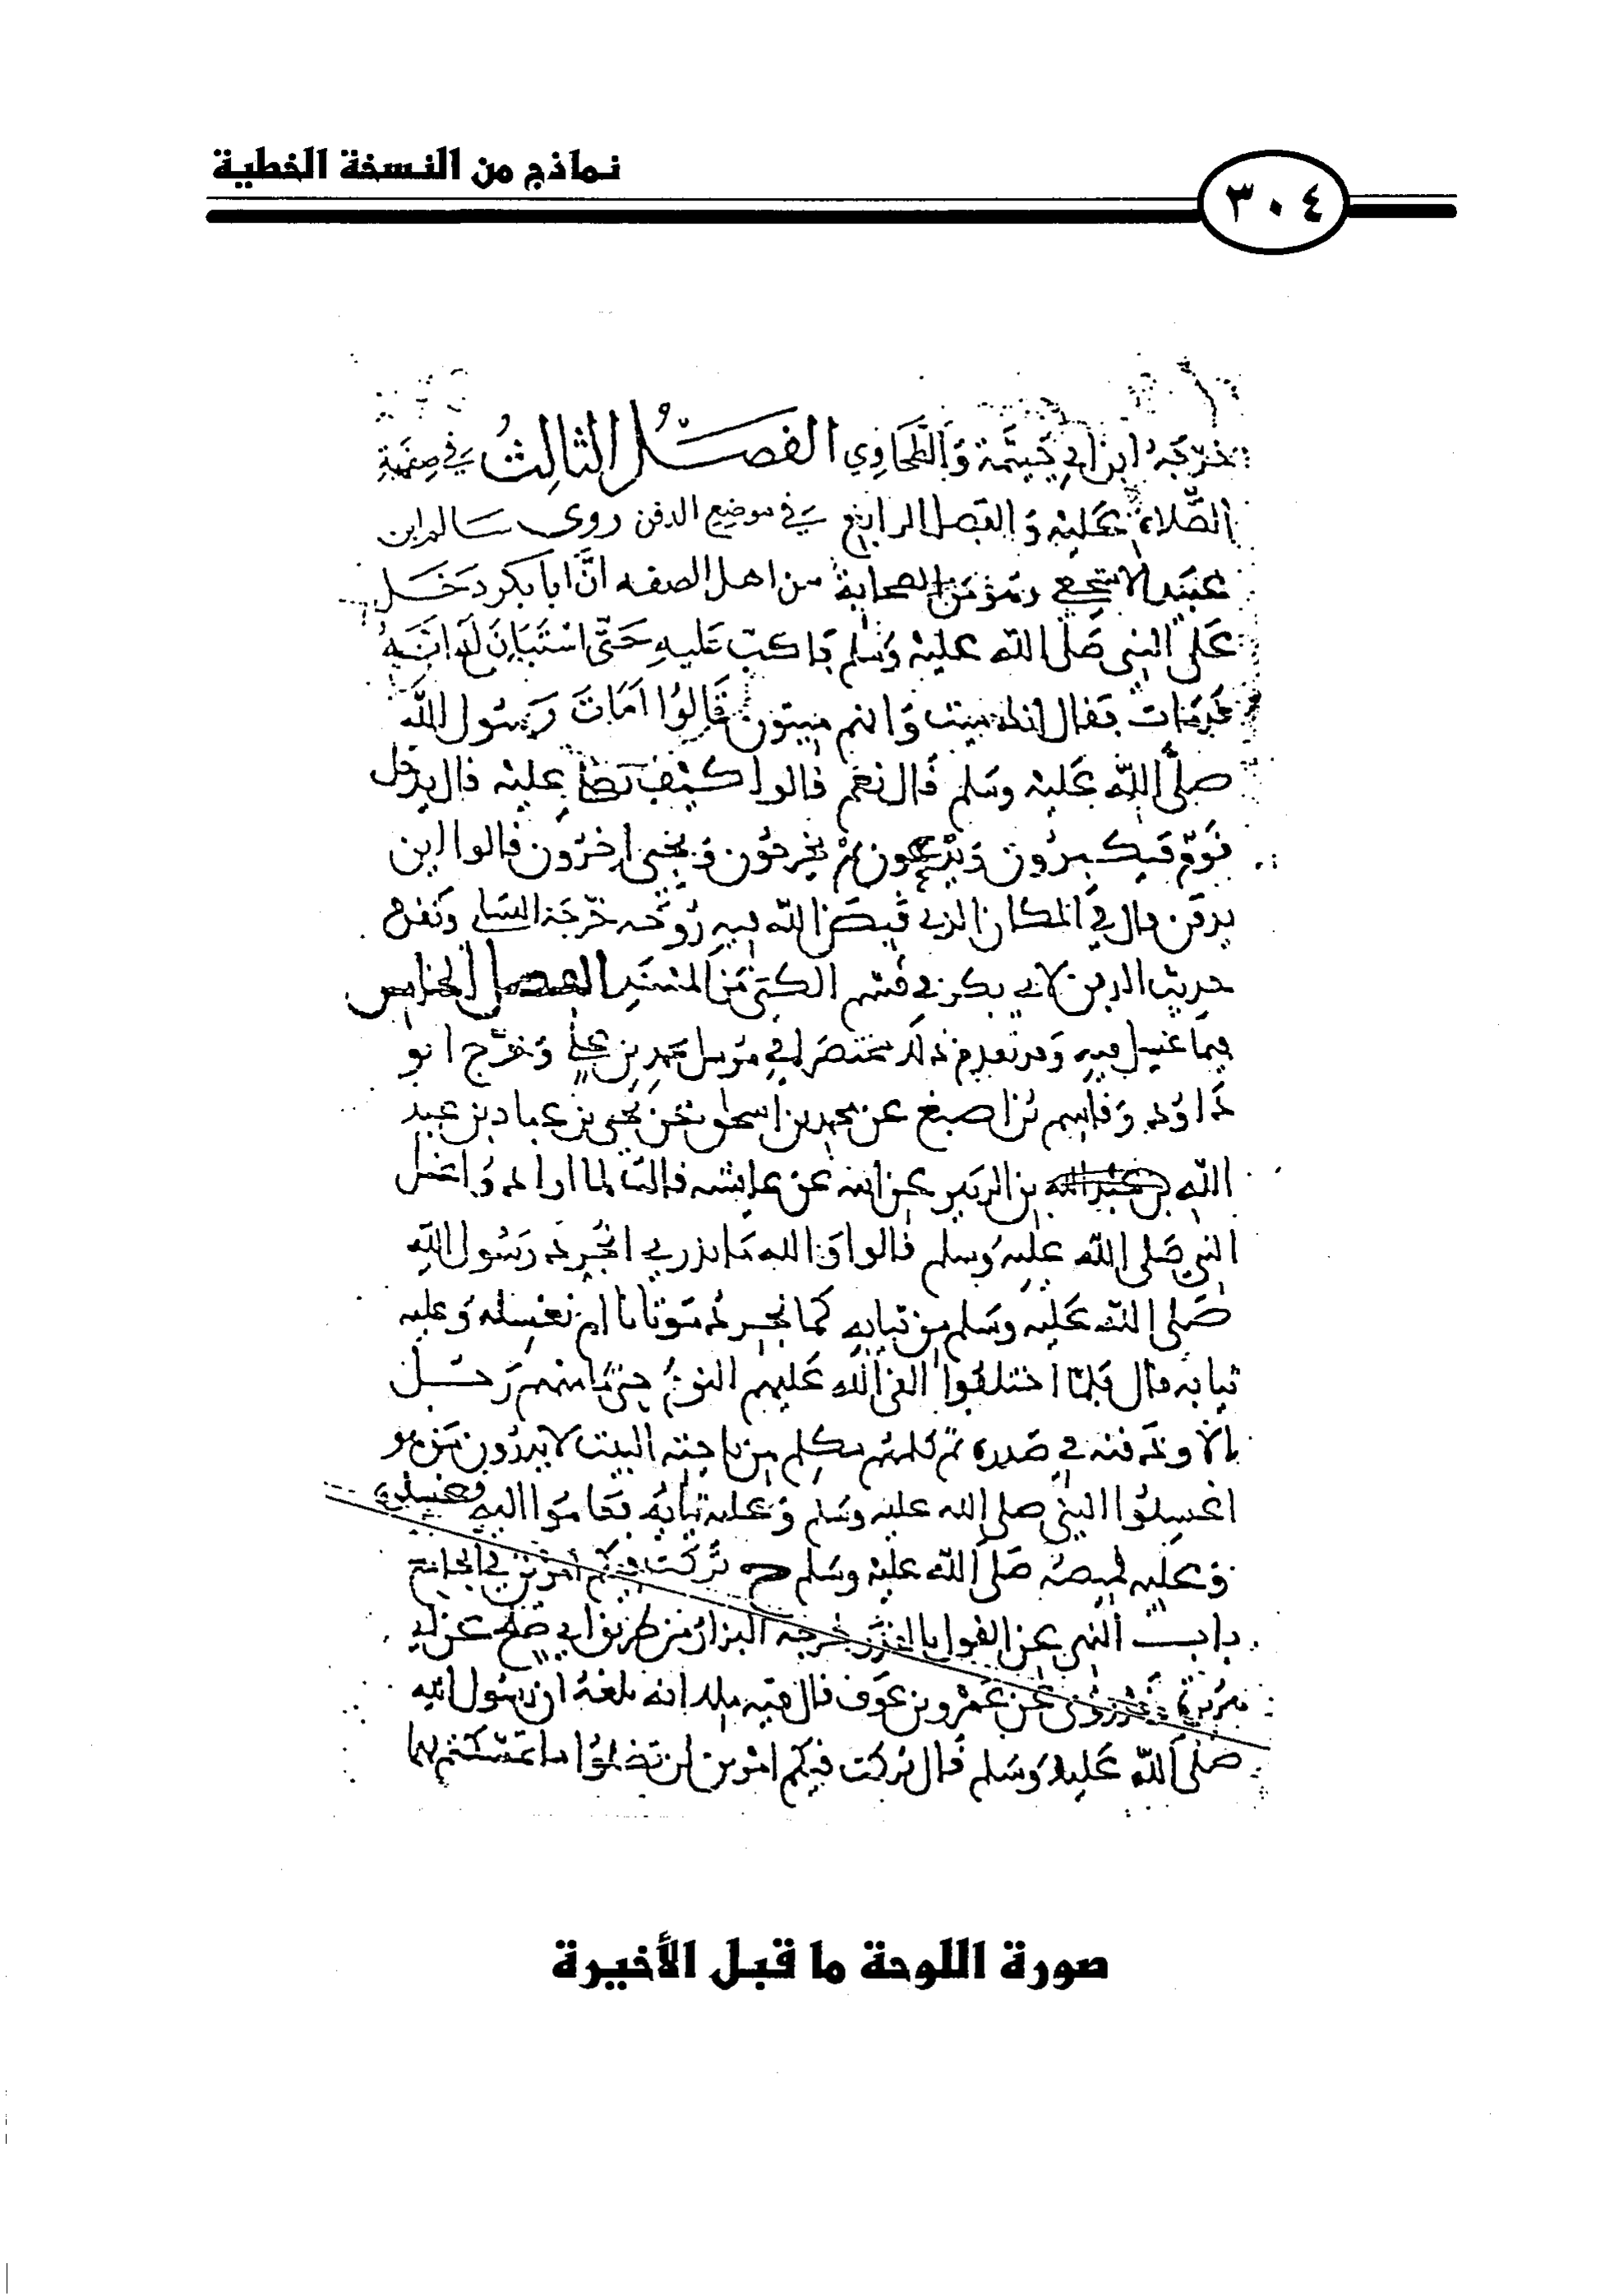 نماذج من النسخة الخطية
٣٠٤
خرّجَهُ ابن ابي خيثمة وَالطحَاوِي الفصَــل الثالِثُ في صِفَة
الصَّلاة عَليه وَالفصل الرابع في موضع الدفن روى سَالم ابن
عُبَيد الاشجعي وَهُوَ مِنَ الصحابة من اهل الصفه انَّ ابا بكر دَخَــل
عَلى النبي صَلى الله عليه وَسَلم فاكبّ عَليهِ حَتَّى اسْتَبَانَ لَه انَّهُ
قد مَات فقال انك ميت وَانهم ميتون قَالوُا امَاتَ رَسُول الله
صلى الله عَليه وسَلم قَال نعَم قالوا كيْف نصَلى عليه قال يدخل
قوم فيكبرُون وَيَدْعون ثم يخرجُون وَيجئ اخرُون قالوا اين
يدفن قال في المكان الذي قبضَ الله فيه رُوحَه خرّجَه النسَاى وتقدم
حديث الدفن لابي بكر في قسْم الكنى مِنَ المسْنَد الفصل الخامس
فيما غسل فيه وَقد تقدم ذلك مختصَرا في مُرسل محمد بن علي وَخرّج ابو
دَاوُد وَقاسِم بنُ اصبغ عن محمد بن اسحاق عَن يحيى بن عباد بن عبد
الله بن عبد الله بن الزبير عن ابيه عَن عايشه قالت لما ارادوُا غسْل
النبي صَلى الله عليه وَسلم قالوا وَالله مَا ندري انُجَرد رَسُول الله
صَلى الله عَليه وسَلم من ثيابِهِ كما نُجَرد مَوْتَانا ام نغسِله وَعليه
ثيابه قال فلمّا اختلفوا القى الله عَليهم النوم حتى مَا منهم رَجــل
الا وَذقنه في صَدره ثم كلمهُم مكلم من ناحيَة البيت لا يَدرُون مَن هو
اغسِلوُا النبي صلى الله عليه وسَلم وَعَليه ثيابُه فقامُوا اليه فغسَلوه
وَعَليه قميصُه صَلى الله عليه وسَلم حـ تركت فيكم امرَين في الجامع
باب النهي عن القول بالقدَر خرجه البزار من طريق ابي صَالح عن ابي
هُرَيرَة وَرُوى عَن عَمْرو بن عَوف قال فيه مالك انه بلغهُ ان رسُول الله
صَلى الله عَليه وَسَلم قَال تركت فيكم امْرين لن تضلوُا ما تمسَّكتم بهما
صورة اللوحة ما قبل الأخيرة